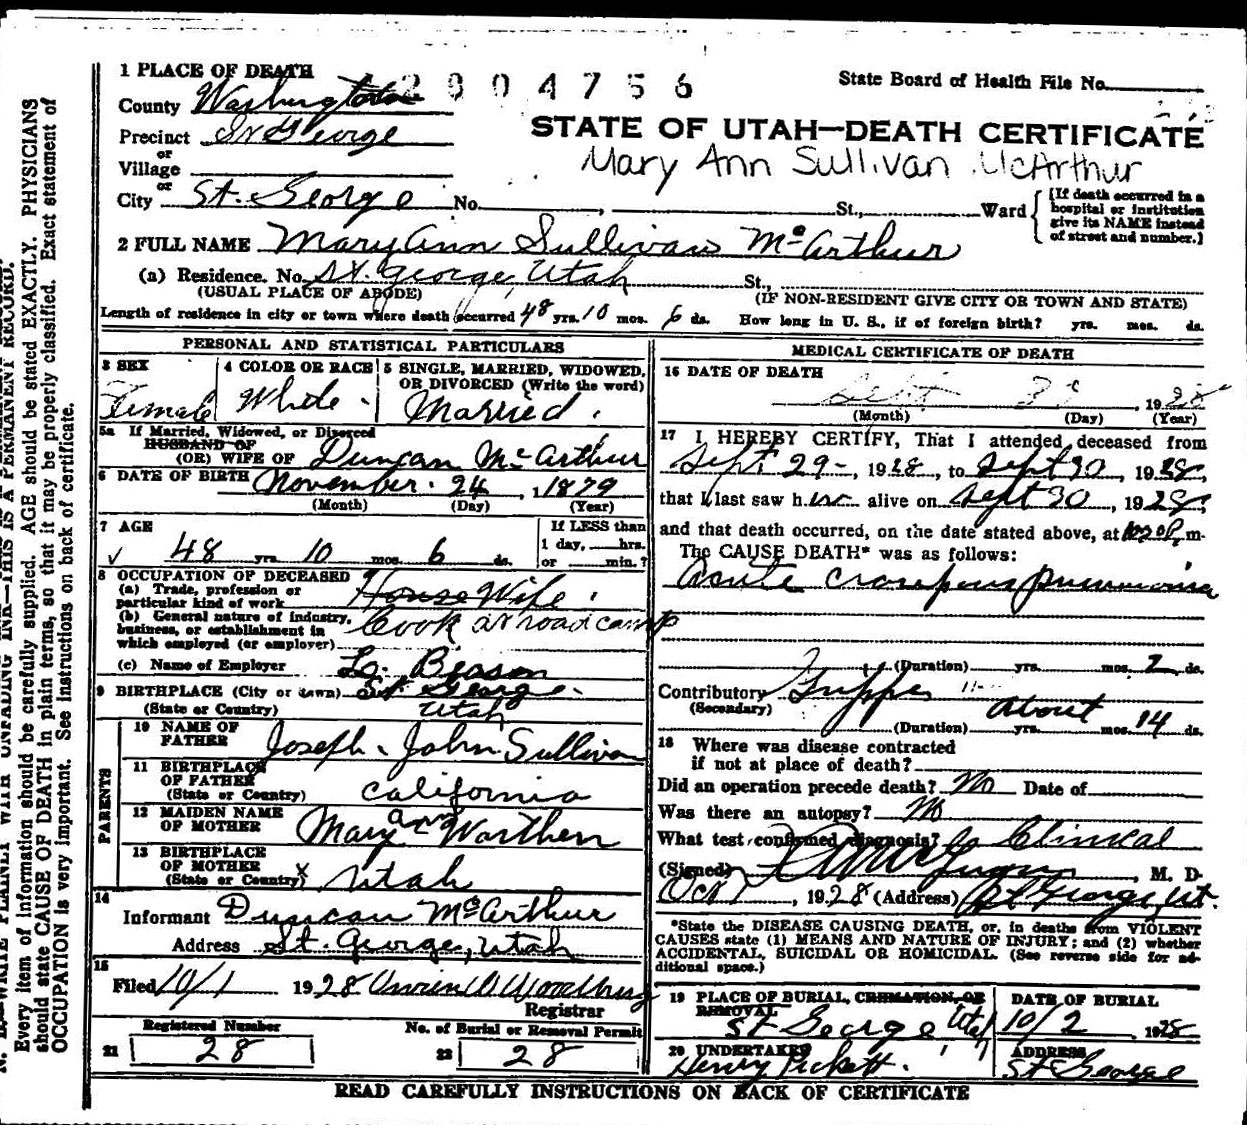 N. B.—WRITE PLAINLY WITH UNFADING INK—THIS IS A PERMANENT RECORD.
Every item of information should be carefully supplied. AGE should be stated EXACTLY. PHYSICIANS
should state CAUSE OF DEATH in plain terms, so that it may be properly classified. Exact statement of
OCCUPATION is very important. See instructions on back of certificate.
1 PLACE OF DEATH
2804756
State Board of Health File No.
County Washington
Precinct St George
STATE OF UTAH—DEATH CERTIFICATE
or
Village
Mary Ann Sullivan McArthur
or
City St. George No. St., Ward
(If death occurred in a
hospital or institution
give its NAME instead
of street and number.)
2 FULL NAME Mary Ann Sullivan McArthur
(a) Residence. No. St. George, Utah St.,
(USUAL PLACE OF ABODE) (IF NON-RESIDENT GIVE CITY OR TOWN AND STATE)
Length of residence in city or town where death occurred 48 yrs. 10 mos. 6 ds. How long in U. S., if of foreign birth? yrs. mos. ds.
PERSONAL AND STATISTICAL PARTICULARS
3 SEX
Female
4 COLOR OR RACE
White
5 SINGLE, MARRIED, WIDOWED,
OR DIVORCED (Write the word)
Married.
5a If Married, Widowed, or Divorced
HUSBAND OF
(OR) WIFE OF Duncan McArthur
6 DATE OF BIRTH November 24, 1879
(Month) (Day) (Year)
7 AGE
48 yrs. 10 mos. 6 ds.
If LESS than
1 day, hrs.
or min.?
8 OCCUPATION OF DECEASED
(a) Trade, profession or
particular kind of work House Wife
(b) General nature of industry,
business, or establishment in
which employed (or employer) Cook at road camp
(c) Name of Employer L. Beason
9 BIRTHPLACE (City or town) St George
(State or Country) Utah
PARENTS
10 NAME OF
FATHER Joseph John Sullivan
11 BIRTHPLACE
OF FATHER
(State or Country) California
12 MAIDEN NAME
OF MOTHER Mary Ann Worthen
13 BIRTHPLACE
OF MOTHER
(State or Country) Utah
14
Informant Duncan McArthur
Address St. George, Utah
15
Filed 10/1 1928 Woodbury
Registrar
Registered Number
21 28
No. of Burial or Removal Permit
22 28
MEDICAL CERTIFICATE OF DEATH
16 DATE OF DEATH
Sept 30, 1928
(Month) (Day) (Year)
17 I HEREBY CERTIFY, That I attended deceased from
Sept 29-, 1928, to Sept 30, 1928,
that I last saw her alive on Sept 30, 1928,
and that death occurred, on the date stated above, at P. m.
The CAUSE DEATH* was as follows:
Acute croupous pneumonia
(Duration) yrs. mos. 2 ds.
Contributory Grippe
(Secondary)
about
(Duration) yrs. mos. 14 ds.
18 Where was disease contracted
if not at place of death?
Did an operation precede death? No Date of
Was there an autopsy? No
What test confirmed diagnosis? Clinical
(Signed) McGregor, M. D.
Oct 1, 1928 (Address) St George, Ut.
*State the DISEASE CAUSING DEATH, or, in deaths from VIOLENT
CAUSES state (1) MEANS AND NATURE OF INJURY; and (2) whether
ACCIDENTAL, SUICIDAL OR HOMICIDAL. (See reverse side for ad-
ditional space.)
19 PLACE OF BURIAL, CREMATION, OR
REMOVAL
St George Utah
DATE OF BURIAL
10/2 1928
20 UNDERTAKER
Henry Pickett.
ADDRESS
St George
READ CAREFULLY INSTRUCTIONS ON BACK OF CERTIFICATE